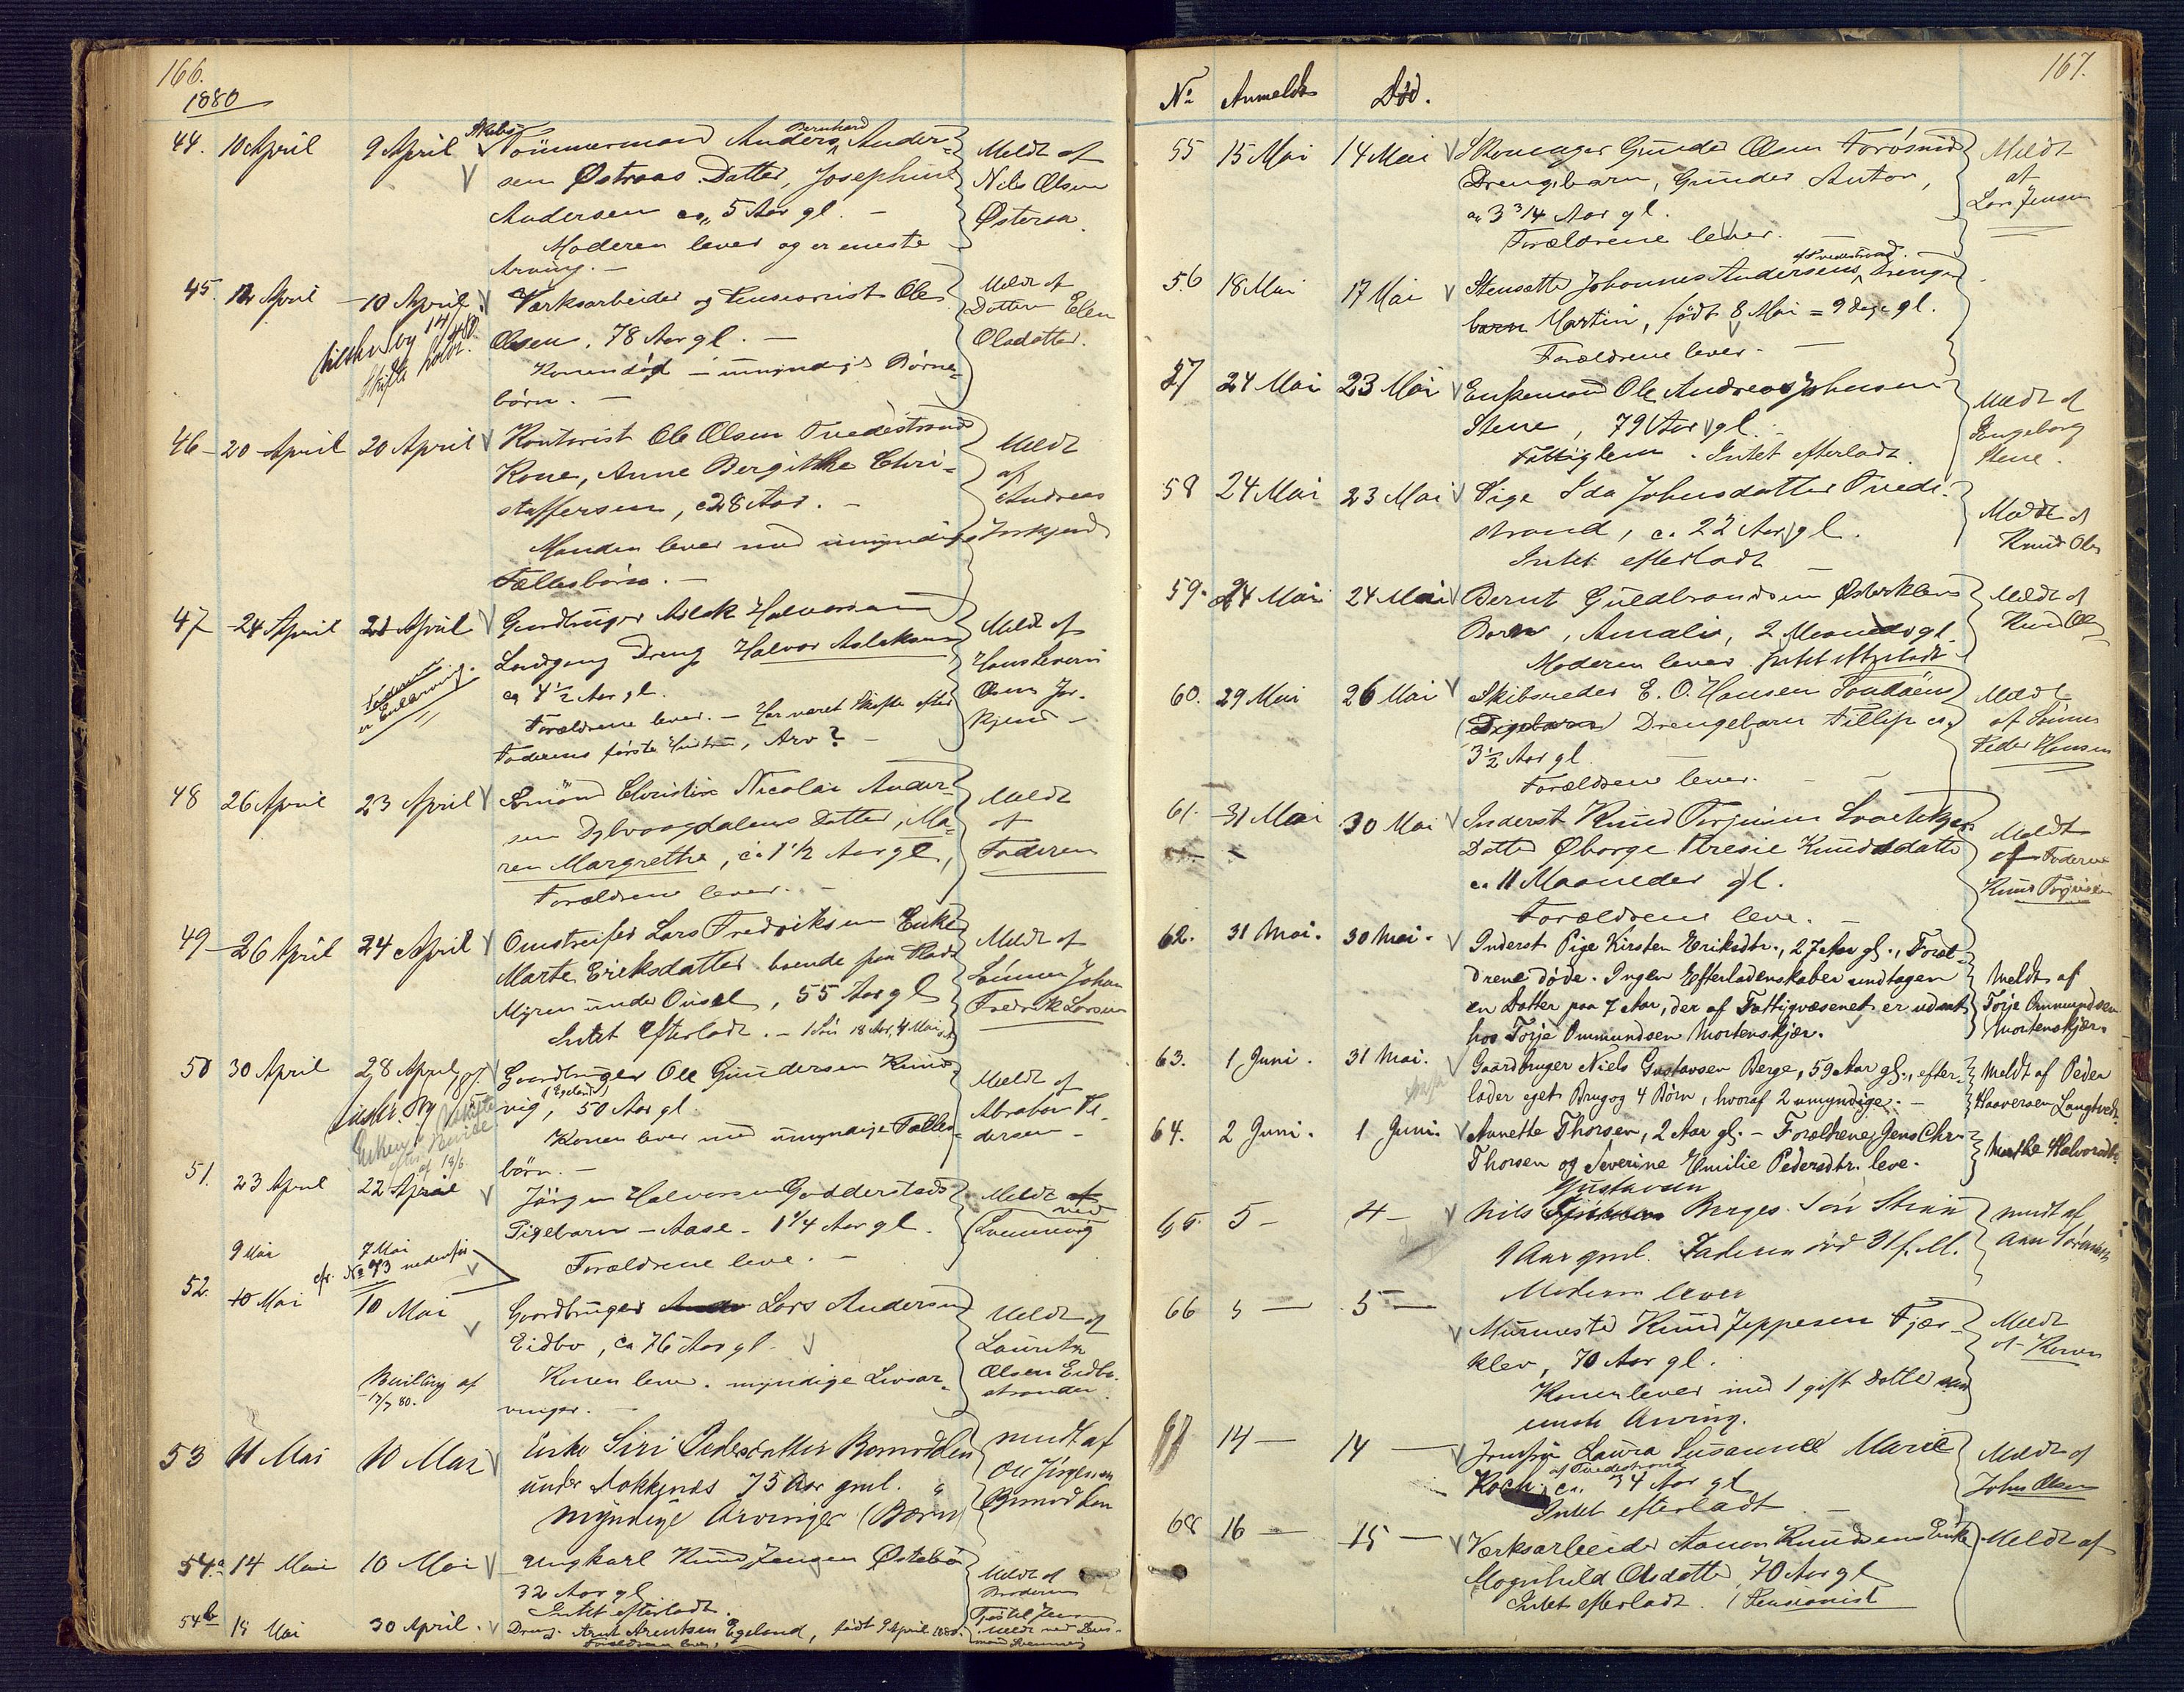 166.
1880
44. 10 April 9 April Skibs
Tömmermand Anders Bernhard Ander-
sen Østraas Datter, Josephine
Andersen ca. 5 Aar gl. -
Moderen lever og er eneste
Arving. -
Meldt af
Nils Olsen
Østeraa.
45. 12 April - 10 April
Værksarbeider og Pensionist Ole
Olsen, 78 Aar gl. -
Konen död - umyndige Börne-
börn. -
Meldt af
Datter Elen
Olsdatter.
46 - 20 April 20 April
Kontorist Ole Olsen Tvedestrand
Kone, Anne Bergitthe Chri-
stoffersen, c. 28 Aar. -
Manden lever med umyndige
Fællesbörn. -
Meldt
af
Andreas
47 - 24 April 21 April
Gaardbruger Aslak Halvorsen
Landgang Dreng Halvor Aslaksen
ca 4 1/2 Aar gl.
Forældrene lever. - Har været Skifte efter
Faderens første Hustru, Arv? -
Faderen
er Enearving.
Meldt af
Hans Severin
Olsen
48 26 April 23 April
Sømand Christian Nicolai Ander-
sen Dybvaagdalens Datter, Ma-
ren Margrethe, ca 1 1/2 Aar gl,
Forældrene lever. -
Meldt
af
Faderen
49 - 26 April 24 April
Omstreifer Lars Fredriksen Enke
Marte Eriksdatter boende paa Plads
Myren under Ousel, 55 Aar gl
Intet Efterladt. - 1 Sön 18 Aar,
Meldt af
Sönnen Johan
Fredrik Larsen
50 30 April 28 April
Gaardbruger Ole Gundersen
vig, (Egeland) 50 Aar gl
Konen lever med umyndige Fælles-
börn. -
Enken i Uskiftet
af 18/6
Meldt af
Abraham Pe-
dersen -
51. 23 April 22 April
Jörgen Halvorsen Godderstads
Pigebarn - Aase - 1 1/4 Aar gl.
Forældrene leve. -
Meldt af
ved
9 Mai 7 Mai
cfr. No 73 nedenfor
52. 10 Mai 10 Mai
Gaardbruger Lars Andersen
Eidbo, ca 76 Aar gl.
Konen lever. myndige Livsar-
vinger. -
Bevilling af
13/7 80.
Meldt af
Lauritz
Olsen Eidbo-
stranden.
53 11 Mai 10 Mai
Enke Siri Pedersdatter
under 75 Aar gml.
Myndige Arvinger (Børn)
meldt af
Ole Jörgensen
54a 14 Mai 10 Mai
Ungkarl Knud Jensen Østebö
32 Aar gl
Intet efterladt.
Meldt af
Broderen
54b 14 Mai 30 April.
Dreng Arnt Arentsen Egeland, födt 9 April 1880.
Forældrene lever, -
Meldt ved Lens-
mand
167.
No Anmeldt Död.
55 15 Mai 14 Mai
Skomager Gunder Olsen
Drengebarn, Gunder Anton,
ca 3 3/4 Aar gl.
Forældrene lever.
Meldt
af
Lars Jensen
56 18 Mai 17 Mai
Stensætter Johannes Andersens af Tvedestrand Drenge
barn Martin, född 8 Mai = 9 dage gl.
Forældrene lever. -
57 24 Mai 23 Mai
Enkemand Ole Andreas Johnsen
Stene, 79 Aar gl.
Fattiglem. Intet efterladt.
Meldt af
Engeborg
Stene.
58 24 Mai 23 Mai
Pige Ida Johnsdatter Tvede-
strand, c. 22 Aar gl.
Intet efterladt -
Meldt af
Knud Ols
59. 24 Mai 24 Mai
Bernt Guldbrandsen
Barn, Amalie, 2 Maaneder gl.
Moderen lever. Intet efterladt -
Meldt af
Knud Ols
60. 29 Mai 26 Mai
Skibsreder E. O. Hansen
(Pigebarn) Drengebarn Fillip ca.
3 1/2 Aar gl.
Forældrene lever. -
Meldt
af Sönnen
Peder Hansen
61. 31 Mai 30 Mai
Inderst Knud Torjusen
Datter Øborge Tresie Knudsdatter
ca 11 Maaneder gl.
Forældrene leve. -
Meldt
af Faderen
Knud Torjusen
62. 31 Mai. 30 Mai.
Inderst Pige Kirsten Eriksdtr., 27 Aar gl., Foræl-
drene døde. Ingen Efterladenskaber undtagen
en Datter paa 7 Aar, der af Fattigvæsenet er udsat
hos Torje Ommundsen Mortenskjær.
Meldt af
Torje Ommundsen
Mortenskjær.
63. 1 Juni. 31 Mai.
Gaardbruger Niels Gustavsen Berge, 59 Aar gl., efter-
lader eget Brug og 4 Børn, hvoraf 2 umyndige. -
Meldt af Peder
Haaversen Langtvedt
64. 2 Juni. 1 Juni.
Annette Thorsen, 2 Aar gl. - Forældrene Jens Chr.
Thorsen og Severine Emilie Pedersdtr. leve.
Marthe Halvorsdtr.
65. 5 - 4 -
Nils Gustavsen Berges Sön
9 Aar gml. Faderen död 31 f. M.
Moderen lever
meldt af
66 5 - 5 -
Murmester Knud Jeppesen Fjær-
klev, 70 Aar gl.
Konen lever med 1 gift Datter som
eneste Arving.
Meldt
af Konen
67 14 - 14 -
Jomfru Laura Susanne Marie
Koch, af Tvedestrand ca. 34 Aar gl
Intet efterladt -
Meldt af
John Olsen
68 16 - 15 -
Værksarbeider Aanon Knudsens Enke
Magnhild Olsdatter, 70 Aar gl
Intet efterladt. / Pensionist
Meldt af